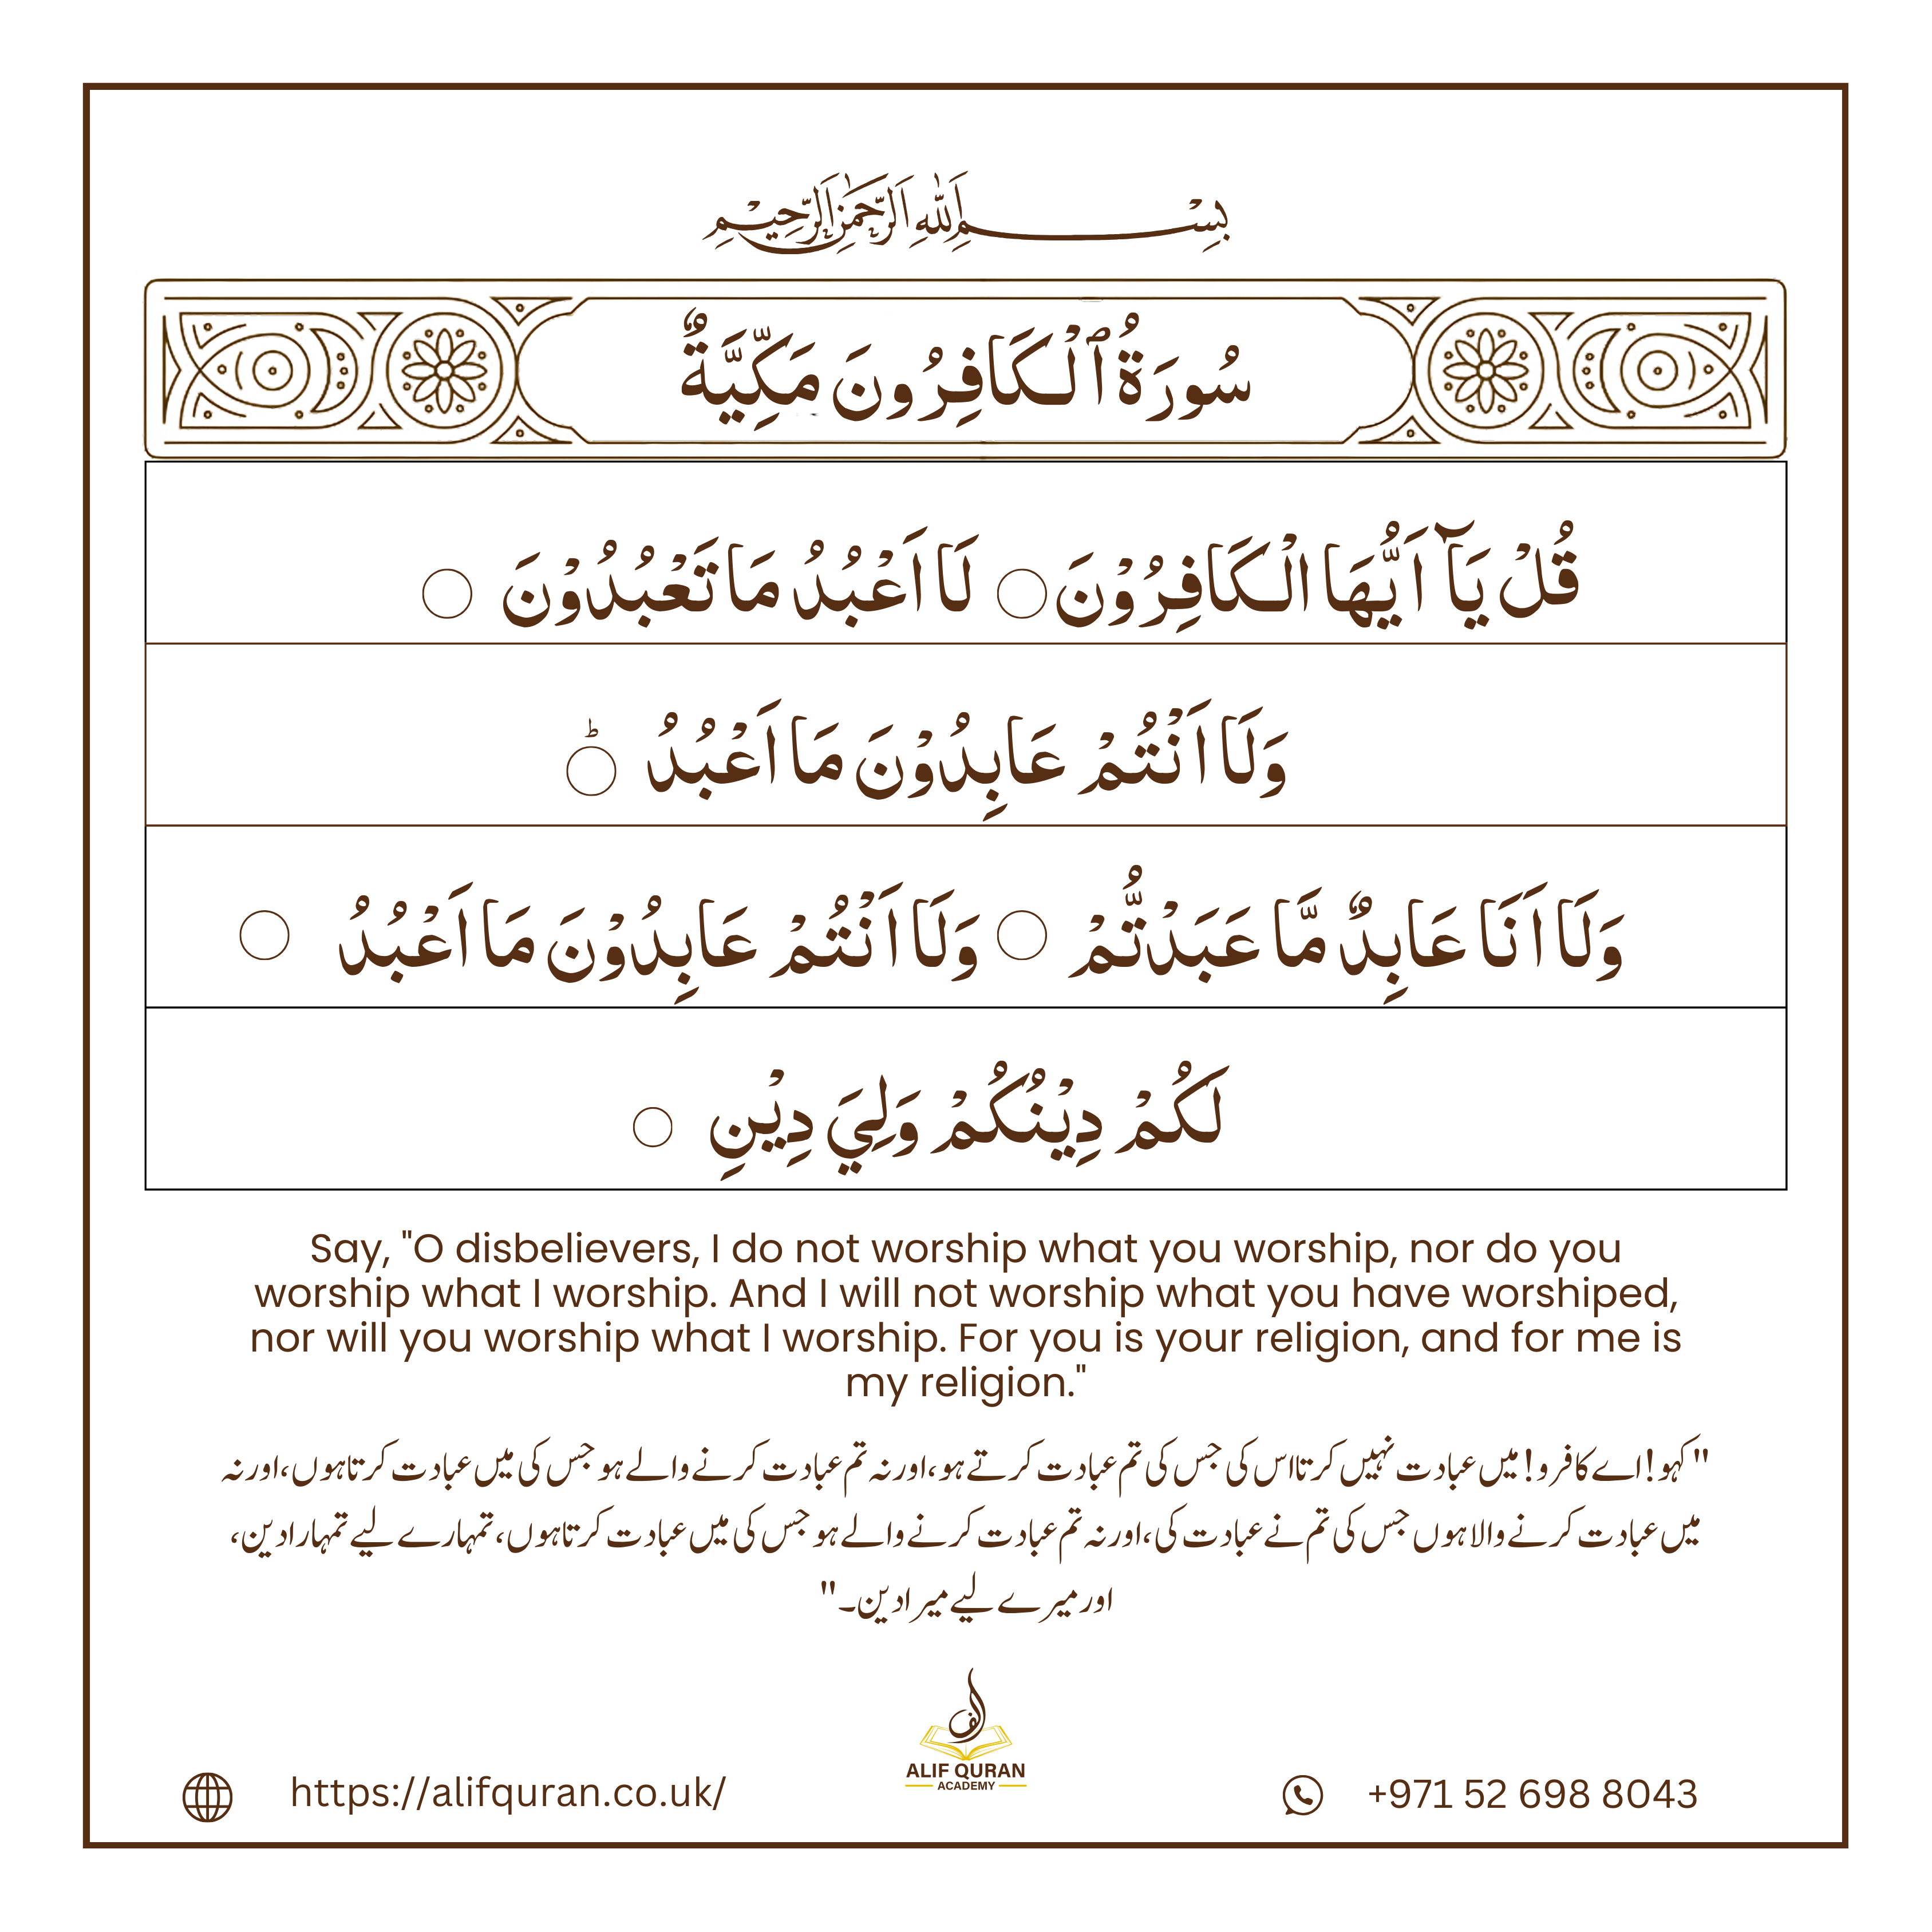 بِسْــــــــمِ اللّٰهِ الرَّحْمٰنِ الرَّحِيْمِ
سُورَةُ ٱلْكَافِرُونَ مَكِّيَّةٌ
قُلْ يَآ اَيُّهَا الْكَافِرُوْنَ ○ لَا اَعْبُدُ مَا تَعْبُدُوْنَ ○
وَلَا اَنْتُمْ عَابِدُوْنَ مَا اَعْبُدُ ○ؕ
وَلَا اَنَا عَابِدٌ مَّا عَبَدْتُّمْ ○ وَلَا اَنْتُمْ عَابِدُوْنَ مَا اَعْبُدُ ○
لَكُمْ دِيْنُكُمْ وَلِيَ دِيْنِ ○
Say, "O disbelievers, I do not worship what you worship, nor do you
worship what I worship. And I will not worship what you have worshiped,
nor will you worship what I worship. For you is your religion, and for me is
my religion."
"کہو! اے کافرو! میں عبادت نہیں کرتا اس کی جس کی تم عبادت کرتے ہو، اور نہ تم عبادت کرنے والے ہو جس کی میں عبادت کرتا ہوں، اور نہ
میں عبادت کرنے والا ہوں جس کی تم نے عبادت کی، اور نہ تم عبادت کرنے والے ہو جس کی میں عبادت کرتا ہوں، تمہارے لیے تمہارا دین،
اور میرے لیے میرا دین۔"
ALIF QURAN
ACADEMY
https://alifquran.co.uk/
+971 52 698 8043